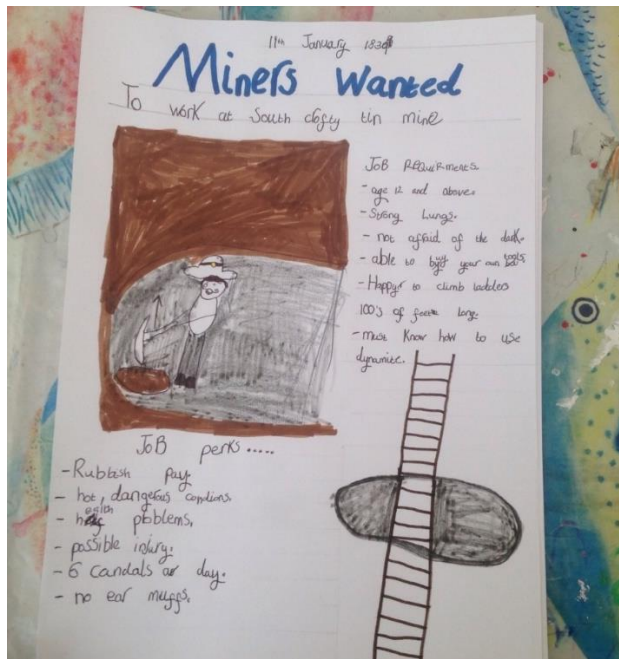 11th January 183
Miners Wanted
To work at South crofty tin mine
JOB REQUIRMENTS
- age 12 and above.
- Strong Lungs.
- not afraid of the dark.
- able to buy your own tools
- Happy to climb ladders
100's of foots long.
- must know how to use
dynamite.
JOB perks.....
- Rubbish pay.
- hot, dangerous condions.
- health problems.
- possible injury.
- 6 candals a day.
- no ear muffs.